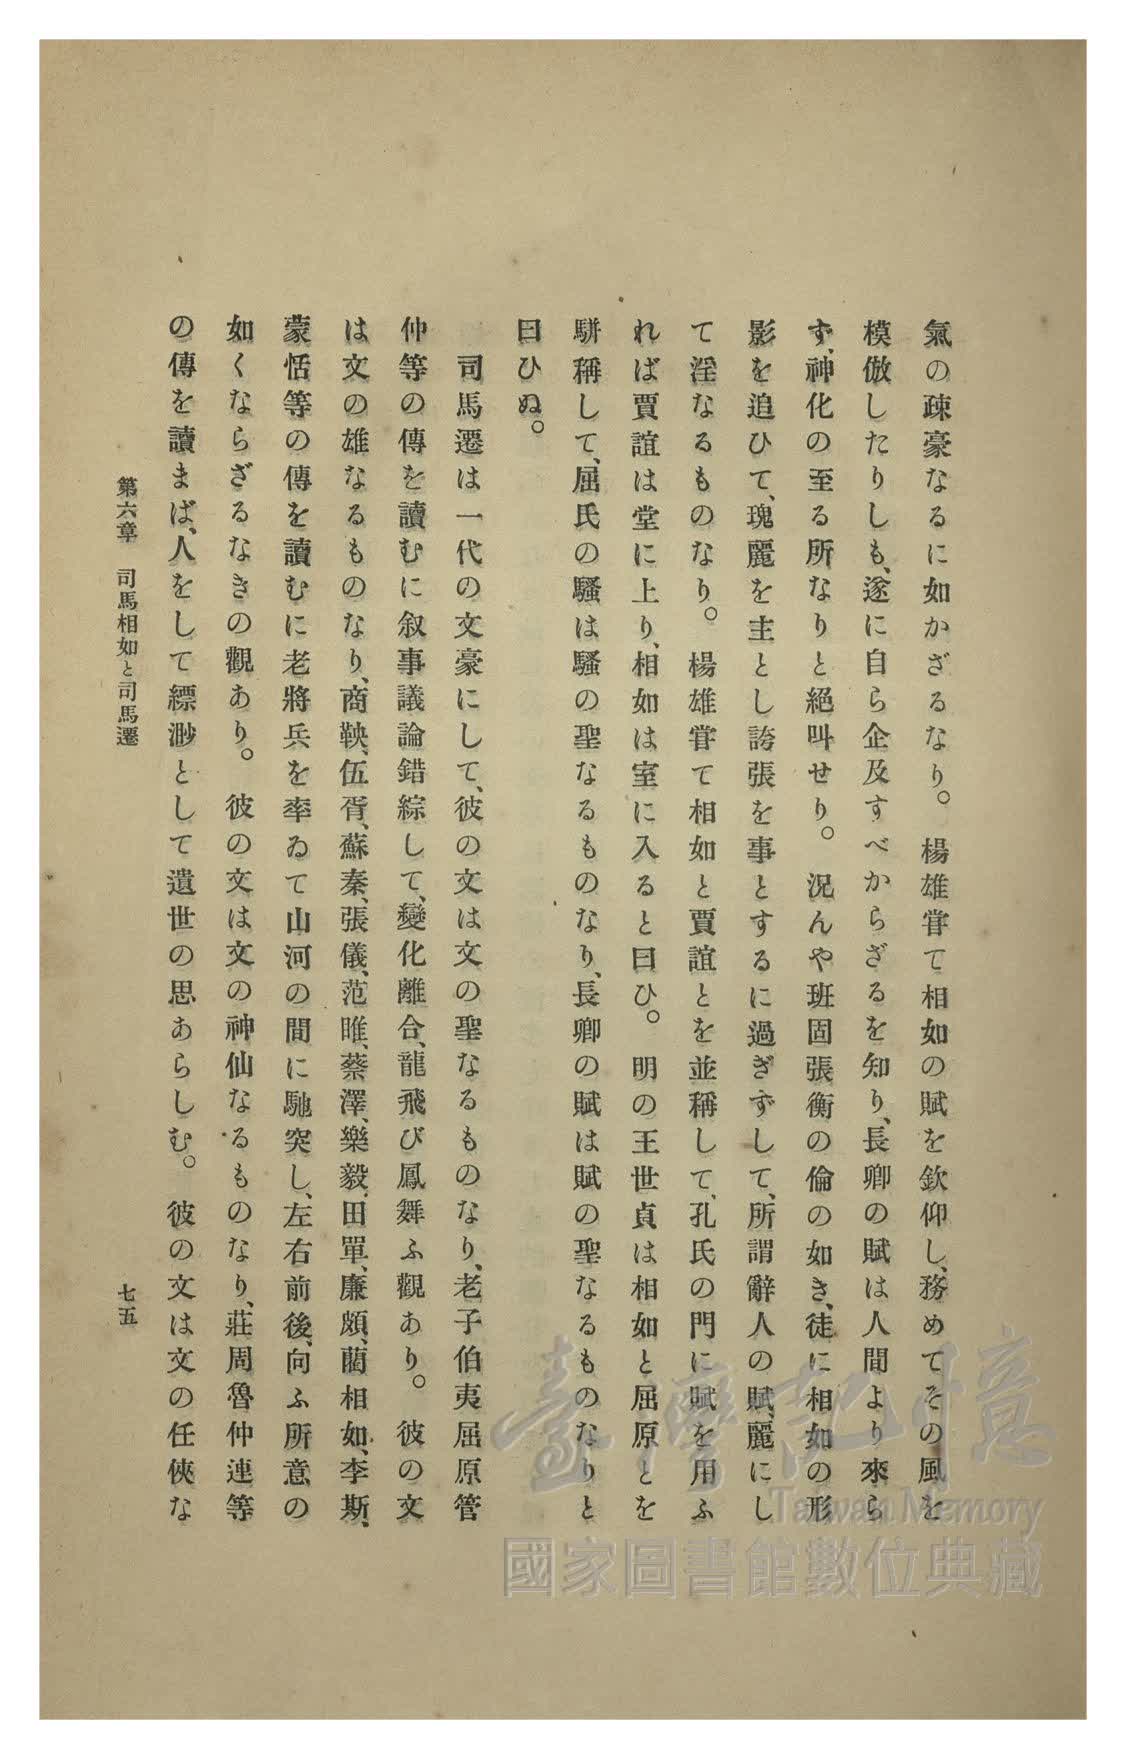 氣の疎豪なるに如かざるなり。楊雄甞て相如の賦を欽仰し、務めてその風を
模倣したりしも、遂に自ら企及すべからざるを知り、長卿の賦は人間より來ら
ず、神化の至る所なりと絕叫せり。況んや班固張衡の倫の如き、徒に相如の形
影を追ひて、瑰麗を主とし誇張を事とするに過ぎずして、所謂辭人の賦、麗にし
て淫なるものなり。楊雄甞て相如と賈誼とを並稱して、孔氏の門に賦を用ふ
れば賈誼は堂に上り、相如は室に入ると曰ひ。明の王世貞は相如と屈原とを
駢稱して、屈氏の騷は騷の聖なるものなり、長卿の賦は賦の聖なるものなりと
曰ひぬ。
司馬遷は一代の文豪にして、彼の文は文の聖なるものなり、老子伯夷屈原管
仲等の傳を讀むに叙事議論錯綜して、變化離合、龍飛び鳳舞ふ觀あり。彼の文
は文の雄なるものなり、商鞅、伍胥、蘇秦、張儀、范睢、蔡澤、樂毅、田單、廉頗、藺相如、李斯、
蒙恬等の傳を讀むに老將兵を率ゐて山河の間に馳突し、左右前後、向ふ所意の
如くならざるなきの觀あり。彼の文は文の神仙なるものなり、莊周魯仲連等
の傳を讀まば、人をして縹渺として遺世の思あらしむ。彼の文は文の任俠な
第六章 司馬相如と司馬遷
七五
臺灣記憶
Taiwan Memory
國家圖書館數位典藏